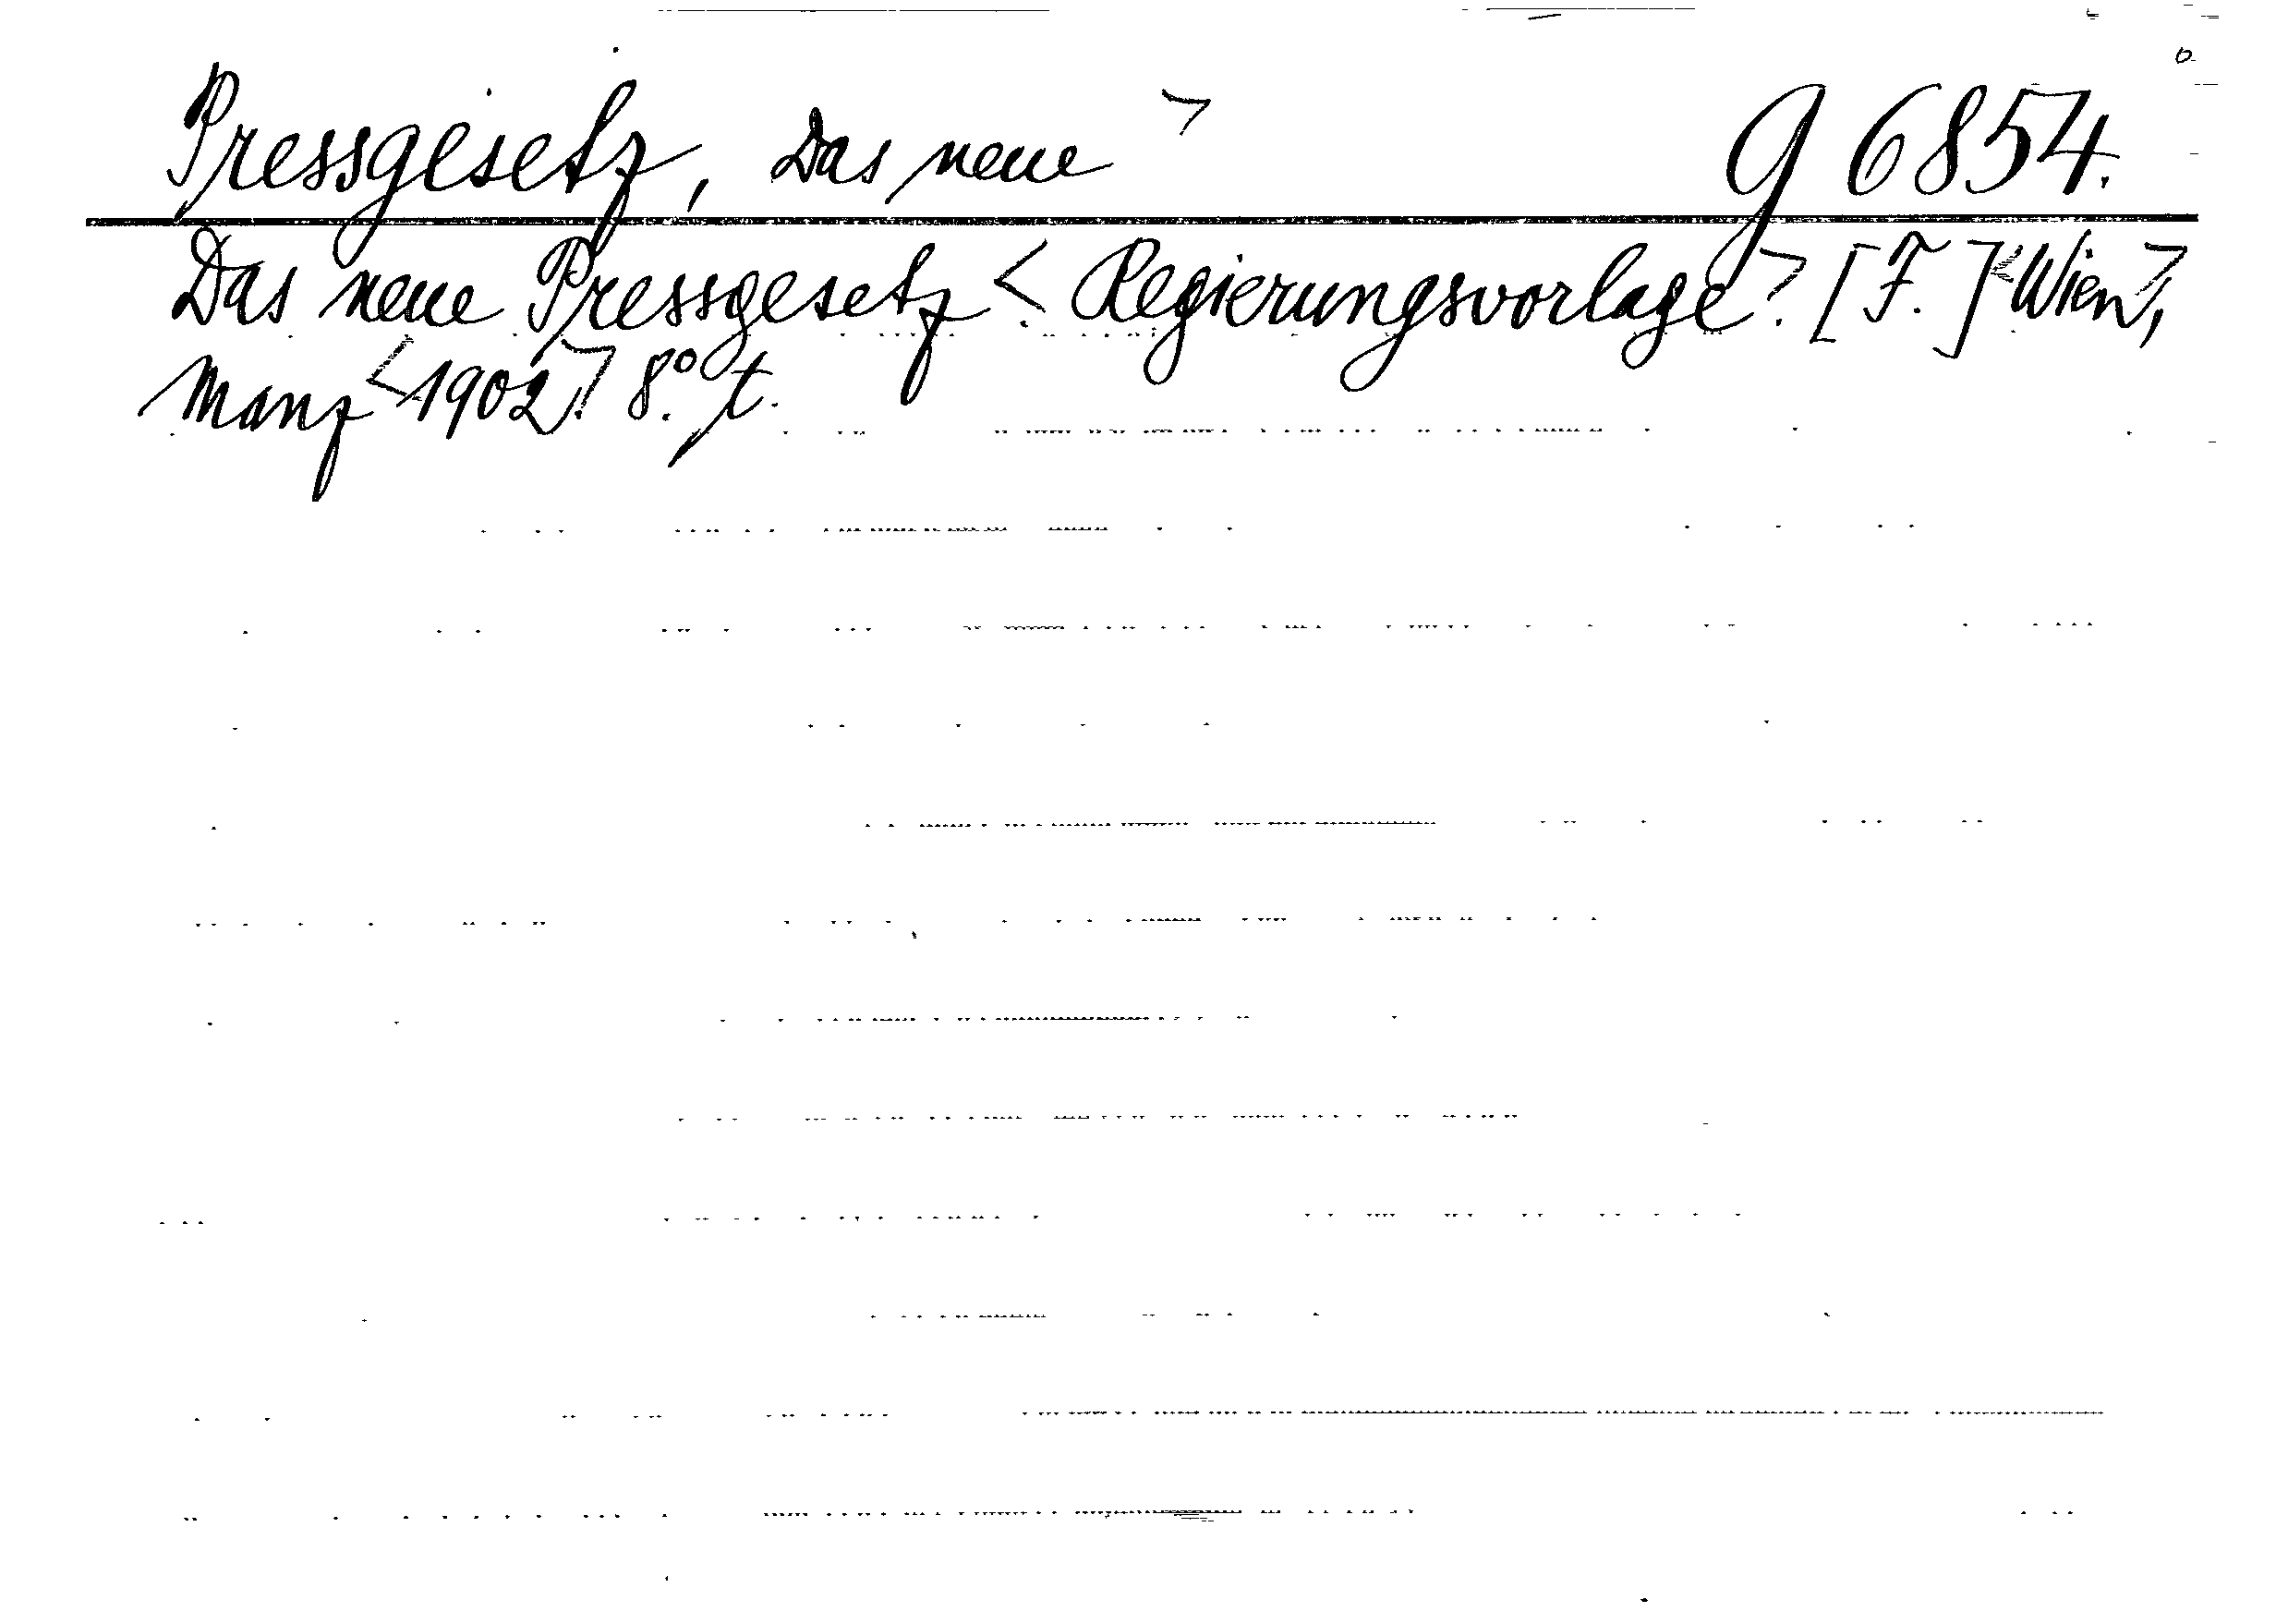 Pressgesetz, Das neue > g 6854.
Das neue Pressgesetz < Regierungsvorlage>. [F.] <Wien>,
Manz <1902>. 8.° t.